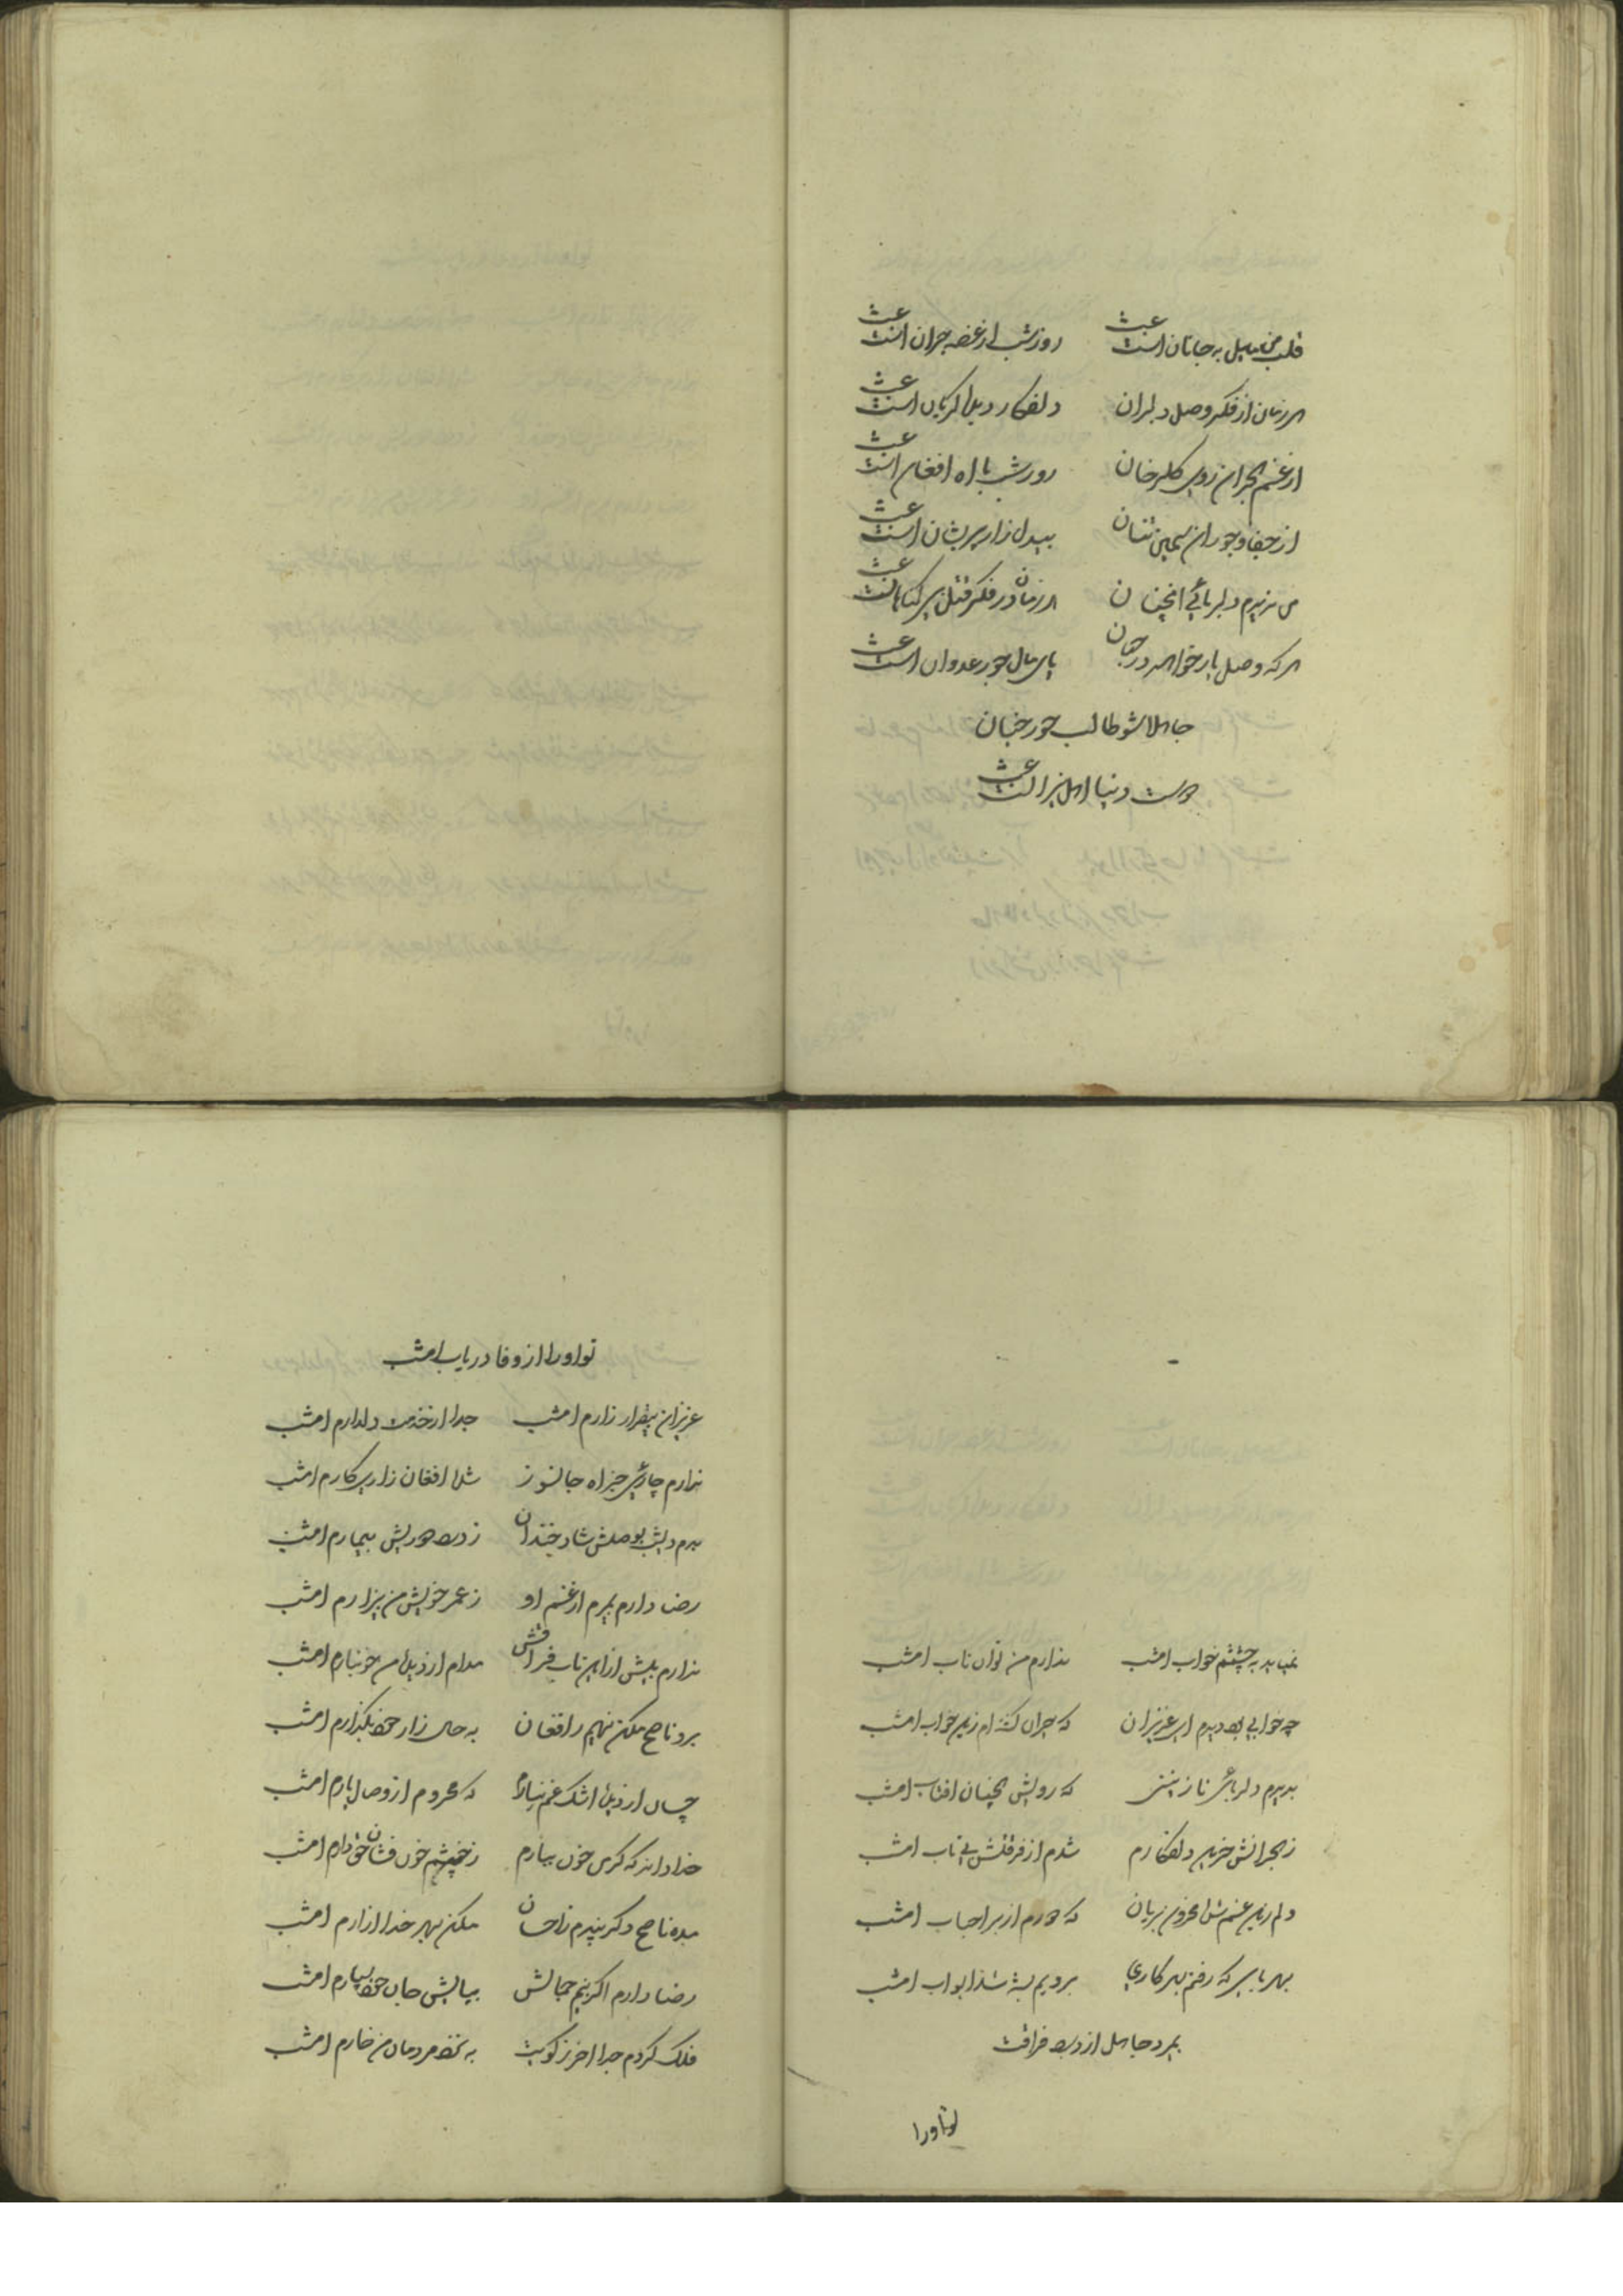 قلب من مایل به جانان است عبث روز شب از غصه حیران است عبث
هر زمان از فکر وصل دلبران دلفکار دیده گریان است عبث
از غم هجران روی گلرخان روز شب با اه افغان است عبث
از جفا و جور ان سیمین تنان بیدل زار پریشان است عبث
من ندیدم دلربائی انچنان هر زمان در فکر قتل است عبث
هر که وصل یار خواهد در جهان پای مال جور عدوان است عبث
جاهلا شو طالب حور جنان
دنیا اهل است عبث
نمیاید به چشمم خواب امشب ندارم من توان تاب امشب
چه خوابی بود دیدم ای عزیزان که حیران گشته ام زین خواب امشب
بدیدم دلربائی نازنینی که رویش همچنان افتاب امشب
ز هجرانش حزین دلفکارم شدم از فرقتش بی تاب امشب
دلم زین غم شده محزون بریان که دورم از بر احباب امشب
بهر بابی که رفتم بهر کاری برویم بسته شد ابواب امشب
بمرد جاهل از درد فراقت
تو اورا
تو اورا از وفا دریاب امشب
عزیزان بیقرار زارم امشب جدا از خدمت دلدارم امشب
ندارم چاره‌ی جز اه جانسوز شده افغان زاری کارم امشب
بدم دیشب بوصلش شاد خندان ز درد دوریش بیمارم امشب
رضا دارم بمیرم از غم او ز عمر خویش من بیزارم امشب
ندارم بیش از این تاب فراقش مدام از دیده من خونبارم امشب
برو ناصح مکن نهیم ز افغان به حال زار خود بگذارم امشب
چسان از دیده اشک غم نبارم که محروم از وصال یارم امشب
خدا داند که گر من خون ببارم ز چشم خون فشان حق دارم امشب
مده ناصح دگر پندم ز احسان مکن بهر خدا ازارم امشب
رضا دارم اگر بینم جمالش بپایش جان خود بسپارم امشب
فلک کردم جدا اخر ز کویت به نزد مردمان من خارم امشب